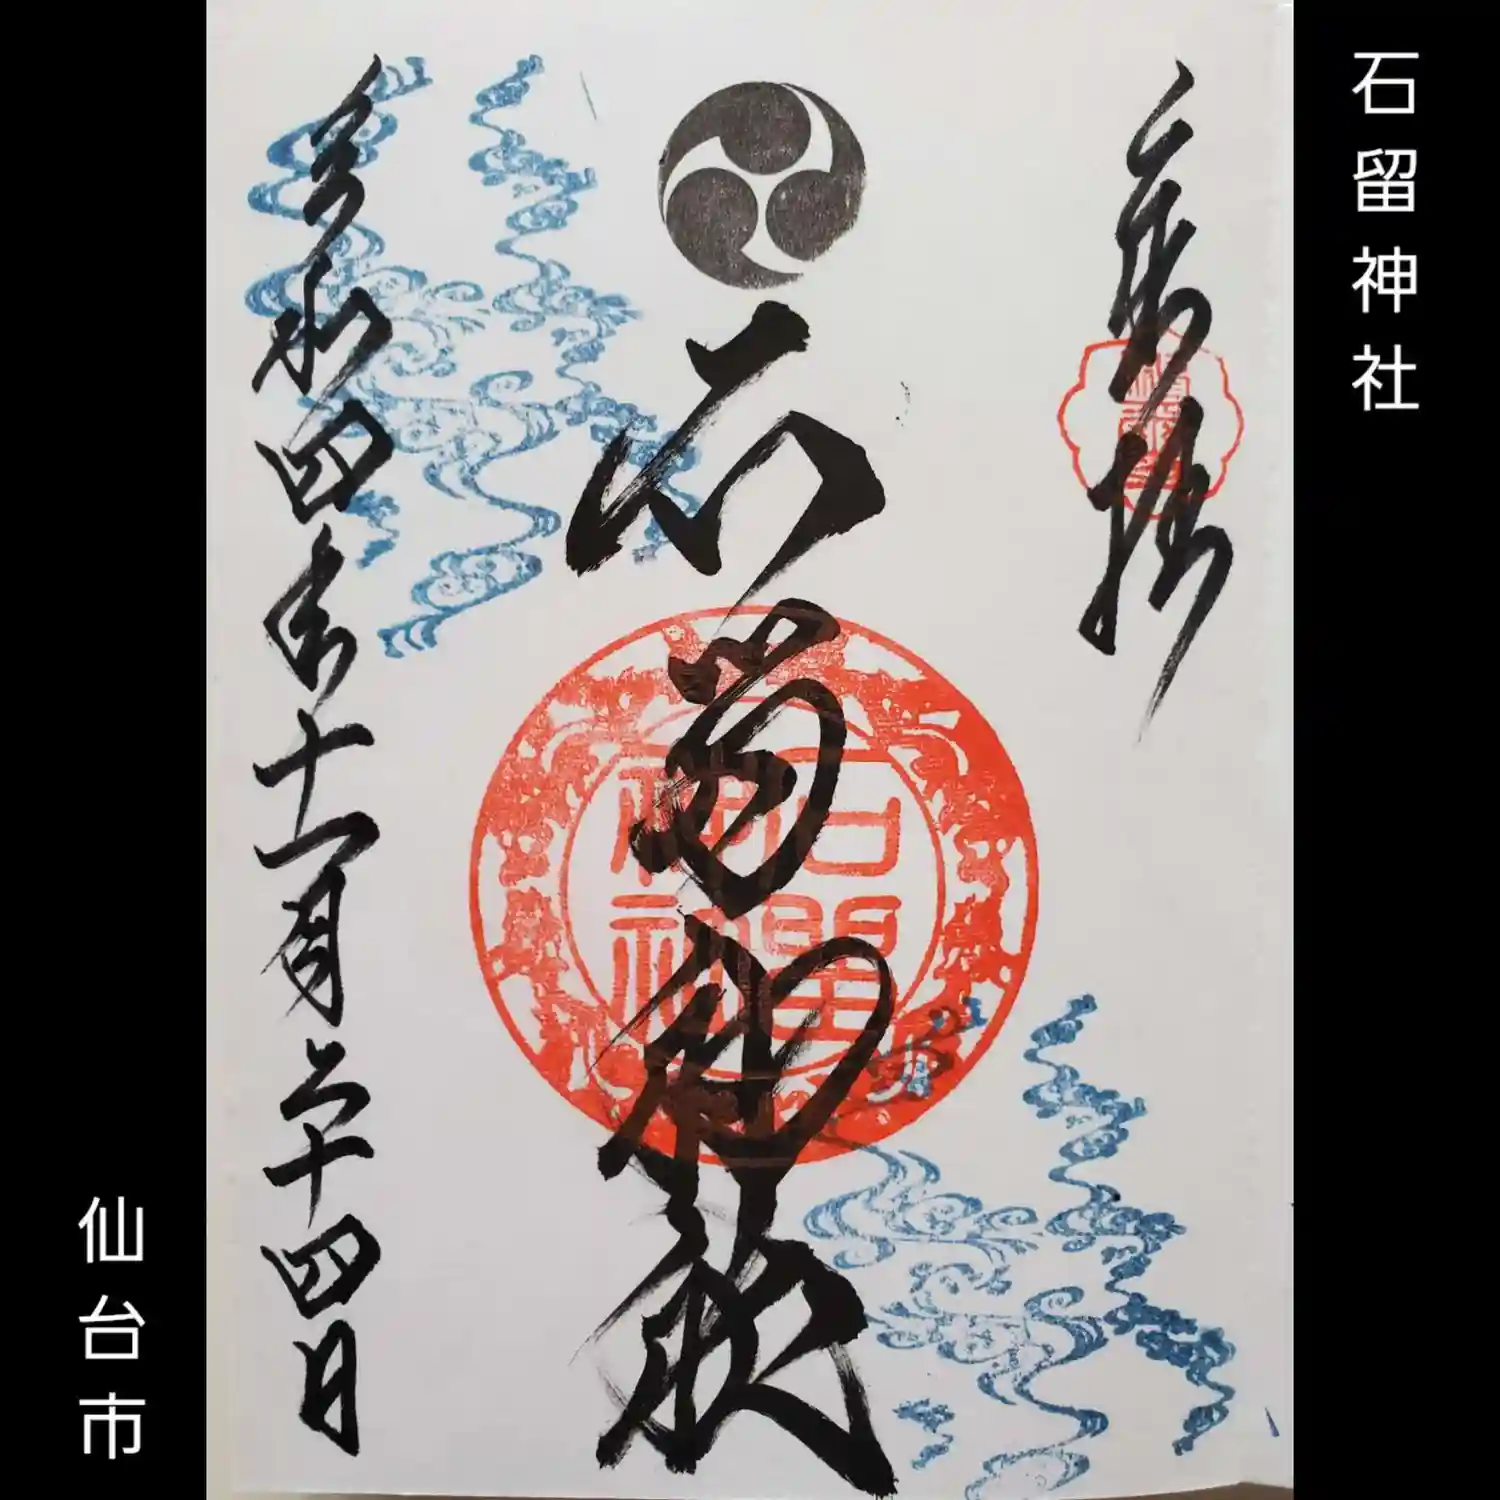 石留神社
石留神社
石留
神社
令和四年十一月二十四日
仙台市